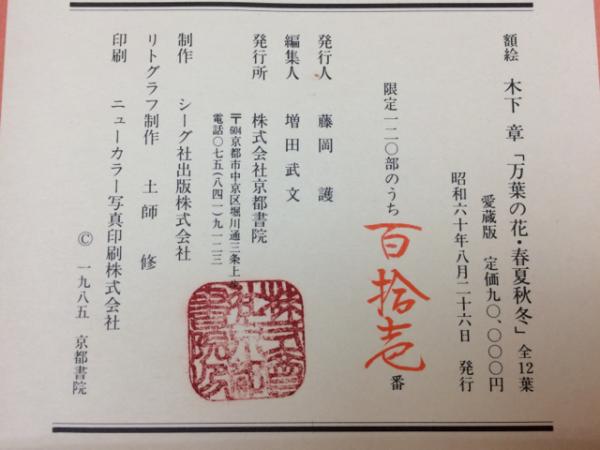 額絵 木下 章「万葉の花・春夏秋冬」全12葉
愛蔵版 定価九〇、〇〇〇円
昭和六十年八月二十六日 発行
限定一二〇部のうち 百拾壱 番
発行人 藤岡 護
編集人 増田武文
発行所 株式会社京都書院
〒604京都市中京区堀川通三条上
電話〇七五(八四一)九一二三
制作 シーグ社出版株式会社
リトグラフ制作 土師 修
印刷 ニューカラー写真印刷株式会社
© 一九八五 京都書院